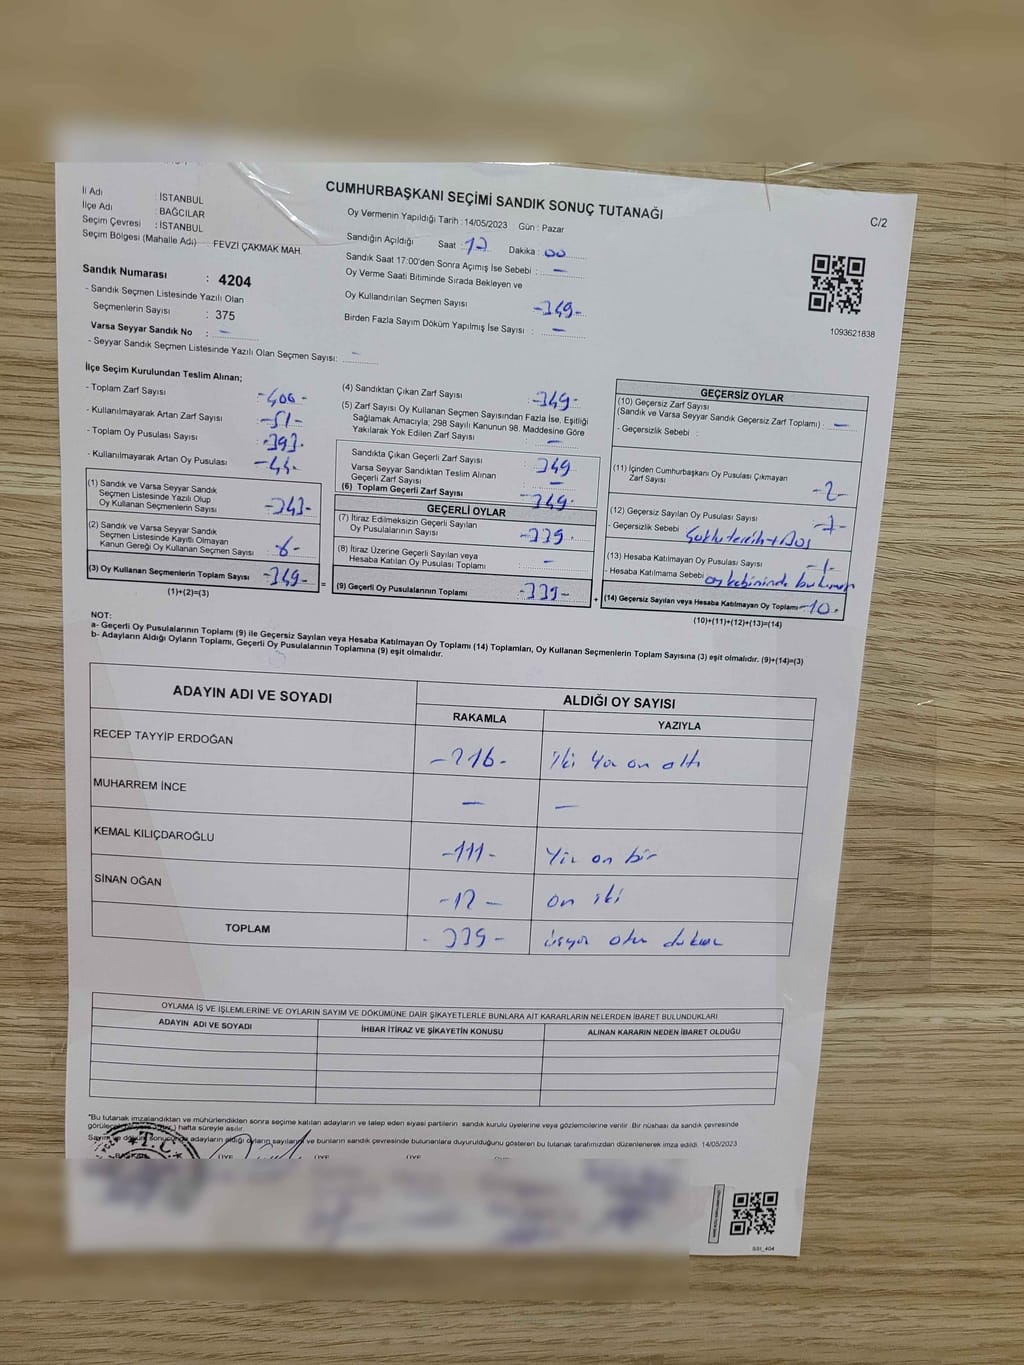 CUMHURBAŞKANI SEÇİMİ SANDIK SONUÇ TUTANAĞI
C/2
İli Adı : İSTANBUL
İlçe Adı : BAĞCILAR
Seçim Çevresi : İSTANBUL
Seçim Bölgesi (Mahalle Adı) : FEVZİ ÇAKMAK MAH.
Sandık Numarası : 4204
- Sandık Seçmen Listesinde Yazılı Olan
Seçmenlerin Sayısı : 375
Varsa Seyyar Sandık No : -
- Seyyar Sandık Seçmen Listesinde Yazılı Olan Seçmen Sayısı: -
Oy Vermenin Yapıldığı Tarih : 14/05/2023 Gün : Pazar
Sandığın Açıldığı Saat : 17 Dakika : 00
Sandık Saat 17:00'den Sonra Açımış İse Sebebi : -
Oy Verme Saati Bitiminde Sırada Bekleyen ve
Oy Kullandırılan Seçmen Sayısı -349-
Birden Fazla Sayım Döküm Yapılmış İse Sayısı : -
1093621838
İlçe Seçim Kurulundan Teslim Alınan;
- Toplam Zarf Sayısı -400-
- Kullanılmayarak Artan Zarf Sayısı -51-
- Toplam Oy Pusulası Sayısı -393-
- Kullanılmayarak Artan Oy Pusulası -44-
(1) Sandık ve Varsa Seyyar Sandık
Seçmen Listesinde Yazılı Olup
Oy Kullanan Seçmenlerin Sayısı -343-
(2) Sandık ve Varsa Seyyar Sandık
Seçmen Listesinde Kayıtlı Olmayan
Kanun Gereği Oy Kullanan Seçmen Sayısı : -6-
(3) Oy Kullanan Seçmenlerin Toplam Sayısı -349- =
(1)+(2)=(3)
(4) Sandıktan Çıkan Zarf Sayısı : -349-
(5) Zarf Sayısı Oy Kullanan Seçmen Sayısından Fazla İse, Eşitliği
Sağlamak Amacıyla; 298 Sayılı Kanunun 98. Maddesine Göre
Yakılarak Yok Edilen Zarf Sayısı : -
Sandıkta Çıkan Geçerli Zarf Sayısı : 349
Varsa Seyyar Sandıktan Teslim Alınan
Geçerli Zarf Sayısı : -
(6) Toplam Geçerli Zarf Sayısı -349-
GEÇERLİ OYLAR
(7) İtiraz Edilmeksizin Geçerli Sayılan
Oy Pusulalarının Sayısı : -339-
(8) İtiraz Üzerine Geçerli Sayılan veya
Hesaba Katılan Oy Pusulası Toplamı : -
(9) Geçerli Oy Pusulalarının Toplamı : -339- +
GEÇERSİZ OYLAR
(10) Geçersiz Zarf Sayısı
(Sandık ve Varsa Seyyar Sandık Geçersiz Zarf Toplamı) : -
- Geçersizlik Sebebi :
(11) İçinden Cumhurbaşkanı Oy Pusulası Çıkmayan
Zarf Sayısı -2-
(12) Geçersiz Sayılan Oy Pusulası Sayısı -7-
- Geçersizlik Sebebi
(13) Hesaba Katılmayan Oy Pusulası Sayısı -1-
- Hesaba Katılmama Sebebi oy kabininde
(14) Geçersiz Sayılan veya Hesaba Katılmayan Oy Toplamı -10-
(10)+(11)+(12)+(13)=(14)
NOT:
a- Geçerli Oy Pusulalarının Toplamı (9) ile Geçersiz Sayılan veya Hesaba Katılmayan Oy Toplamı (14) Toplamları, Oy Kullanan Seçmenlerin Toplam Sayısına (3) eşit olmalıdır. (9)+(14)=(3)
b- Adayların Aldığı Oyların Toplamı, Geçerli Oy Pusulalarının Toplamına (9) eşit olmalıdır.
ADAYIN ADI VE SOYADI ALDIĞI OY SAYISI
RAKAMLA YAZIYLA
RECEP TAYYİP ERDOĞAN -216- iki yüz on altı
MUHARREM İNCE - -
KEMAL KILIÇDAROĞLU -111- yüz on bir
SİNAN OĞAN -12- on iki
TOPLAM -339- üçyüz otuz dokuz
OYLAMA İŞ VE İŞLEMLERİNE VE OYLARIN SAYIM VE DÖKÜMÜNE DAİR ŞİKAYETLERLE BUNLARA AİT KARARLARIN NELERDEN İBARET BULUNDUKLARI
ADAYIN ADI VE SOYADI İHBAR İTİRAZ VE ŞİKAYETİN KONUSU ALINAN KARARIN NEDEN İBARET OLDUĞU
"Bu tutanak imzalandıktan ve mühürlendikten sonra seçime katılan adayların ve talep eden siyasi partilerin sandık kurulu üyelerine veya gözlemcilerine verilir. Bir nüshası da sandık çevresinde
hafta süreyle asılır.
adayların aldığı oyların sayılarını ve bunların sandık çevresinde bulunanlara duyurulduğunu gösteren bu tutanak tarafımızdan düzenlenerek imza edildi. 14/05/2023
T.C.
ÜYE ÜYE ÜYE
SSI_404